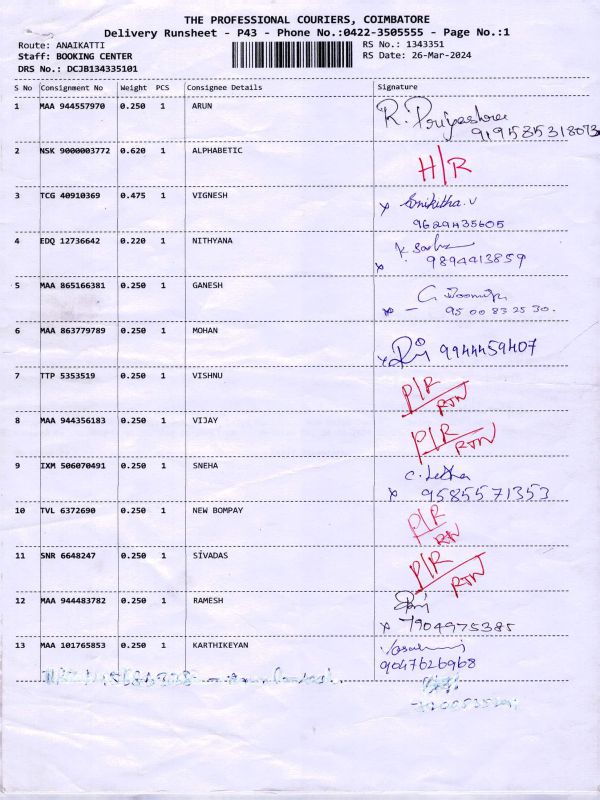 THE PROFESSIONAL COURIERS, COIMBATORE
Delivery Runsheet - P43 - Phone No.:0422-3505555 - Page No.:1
Route: ANAIKATTI RS No.: 1343351
Staff: BOOKING CENTER RS Date: 26-Mar-2024
DRS No.: DCJB134335101
S No Consignment No Weight PCS Consignee Details Signature
1 MAA 944557970 0.250 1 ARUN R. Priyeshree
919585318073
2 NSK 9000003772 0.620 1 ALPHABETIC H/R
3 TCG 40910369 0.475 1 VIGNESH x Smikitha.v
9629435605
4 EDQ 12736642 0.220 1 NITHYANA
x 9894413859
5 MAA 865166381 0.250 1 GANESH
x - 95 00 83 25 30.
6 MAA 863779789 0.250 1 MOHAN x 9944459407
7 TTP 5353519 0.250 1 VISHNU P/R
RTN
8 MAA 944356183 0.250 1 VIJAY P/R
RTN
9 IXM 506070491 0.250 1 SNEHA
x 9585571353
10 TVL 6372690 0.250 1 NEW BOMPAY P/R
11 SNR 6648247 0.250 1 SÍVADAS P/R
RTN
12 MAA 944483782 0.250 1 RAMESH
x 7904975385
13 MAA 101765853 0.250 1 KARTHIKEYAN
9047626968